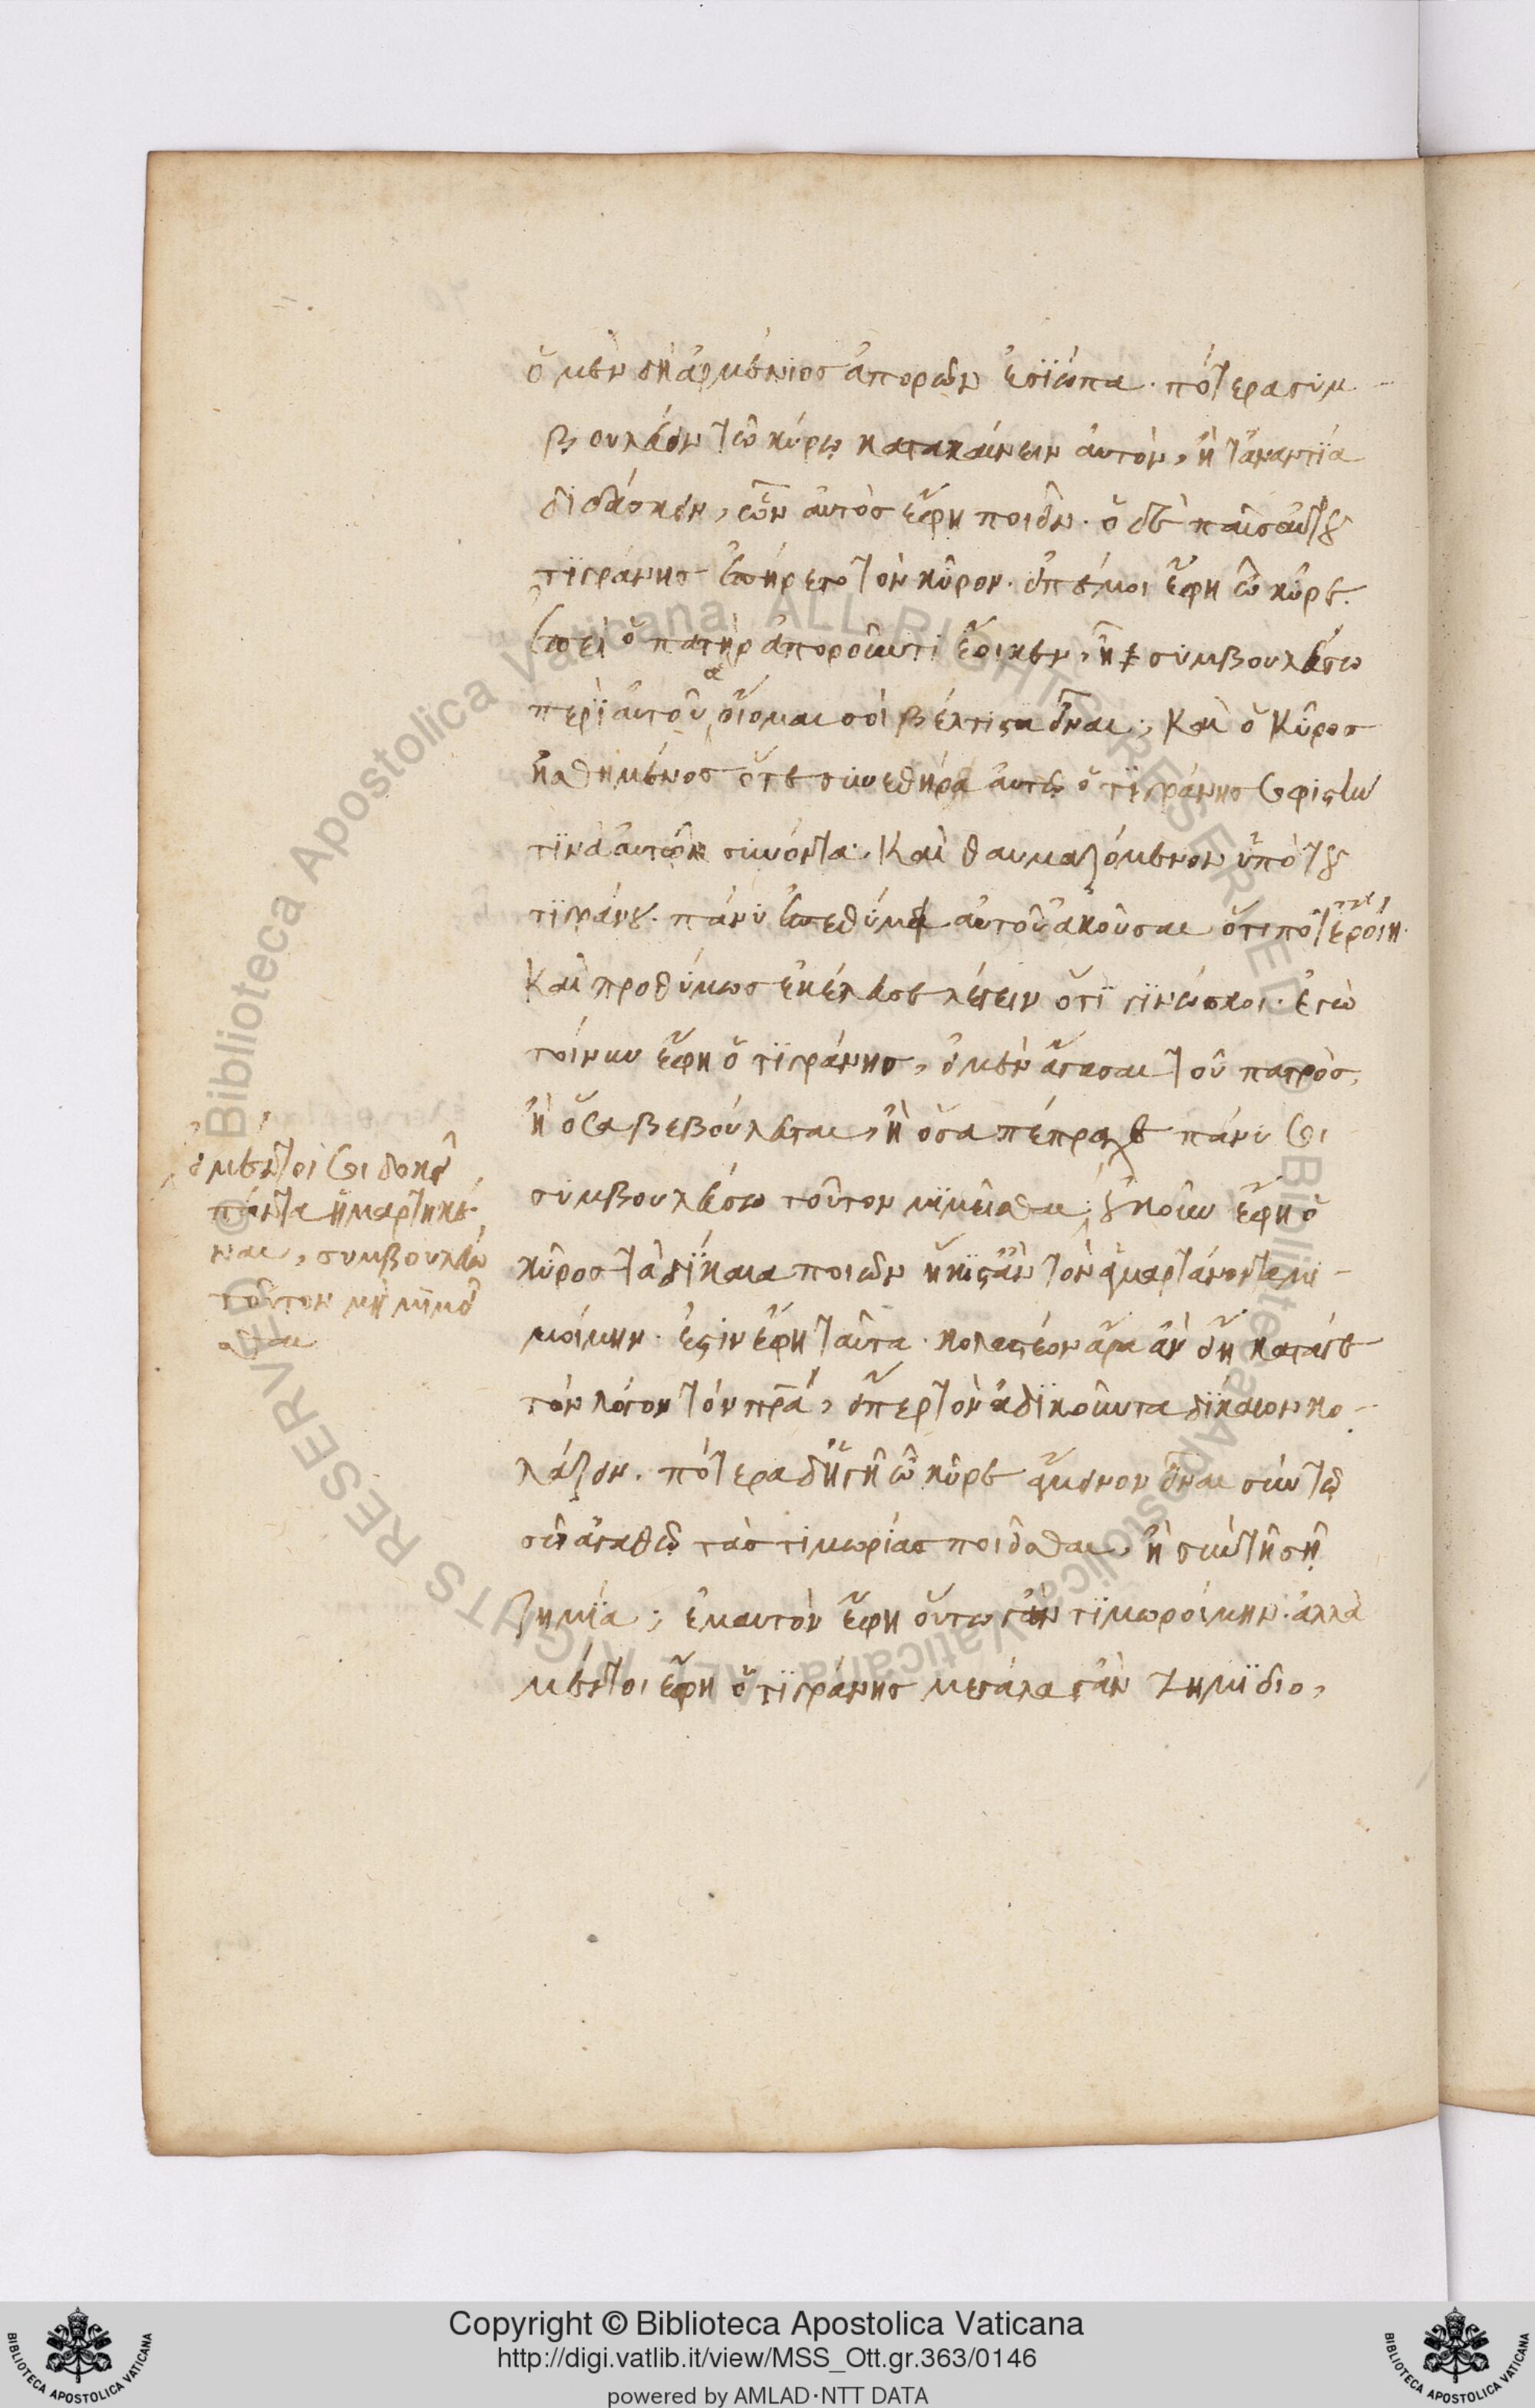 ὁ μὲν δὴ ἀρμένιος ἀπορῶν ἐσϊώπα. πότερα συμ-
βουλεύειν τῶ κύρῳ κατακαίνειν αὐτὸν, ἢ τἀναντία
διδάσκειν, ὧν αὐτὸς ἔφη ποιεῖν. ὁ δὲ παῖς αὐτοῦ
τϊγράνης ἐπήρετο τὸν κῦρον. εἰπέ μοι ἔφη ὦ κῦρε.
ἐπεὶ ὁ πατὴρ ἀποροῦντι ἔοικεν, ἦ συμβουλεύσω
περὶ αὐτοῦ ἃ οἴομαι σοὶ βέλτιστα εἶναι; καὶ ὁ κῦρος
ἠσθημένος ὅτε συνεθήρα αὐτῷ ὁ τϊγράνης σοφιστὴν
τϊνὰ αὐτῶ συνόντα. καὶ θαυμαζόμενον ὑπὸ τοῦ
τϊγράνου. πάνυ ἐπεθύμει αὐτοῦ ἀκοῦσαι ὅτι ποτὲ ἐροίη.
καὶ προθύμως ἐκέλευσε λέγειν ὅτϊ γϊνώσκοι. ἐγὼ
τοίνυν ἔφη ὁ τϊγράνης, εἰ μὲν ἄγασαι τοῦ πατρὸς,
ἢ ὅσα βεβούλευται, ἢ ὅσα πέπραχε πάνυ σοι
συμβουλεύσω τοῦτον μϊμεῖσθαι; οὐκοῦν ἔφη ὁ
κῦρος τὰ δίκαια ποιῶν ἥκιστ' ἂν τὸν ἁμαρτάνοντα μι-
μοίμην. ἔστιν ἔφη ταῦτα. κολαστέον ἄρα ἂν εἴη κατάγε
τὸν λόγον τὸν πρα, εἴπερ τὸν ἀδϊκοῦντα δίκαιον κο-
λάζειν. πότερα δ' ἡγῆ ὦ κῦρε ἄμεινον εἶναι σὺν τῶ
σῶ ἀγαθῶ τὰς τιμωρίας ποιεῖσθαι, ἢ σὺν τῆ σῆ
ζημϊα; ἐμαυτὸν ἔφη οὕτω γ' ἂν τϊμωροίμην. ἀλλὰ
μέντοι ἔφη ὁ τϊγράνης μεγάλα γ' ἂν ζημϊοῖο,
εἰ μέντοι σοι δοκεῖ
πάντα ἡμαρτηκέ-
ναι, συμβουλεύω
τοῦτον μὴ μϊμεῖ
σθαι
Copyright © Biblioteca Apostolica Vaticana
http://digi.vatlib.it/view/MSS_Ott.gr.363/0146
powered by AMLAD·NTT DATA